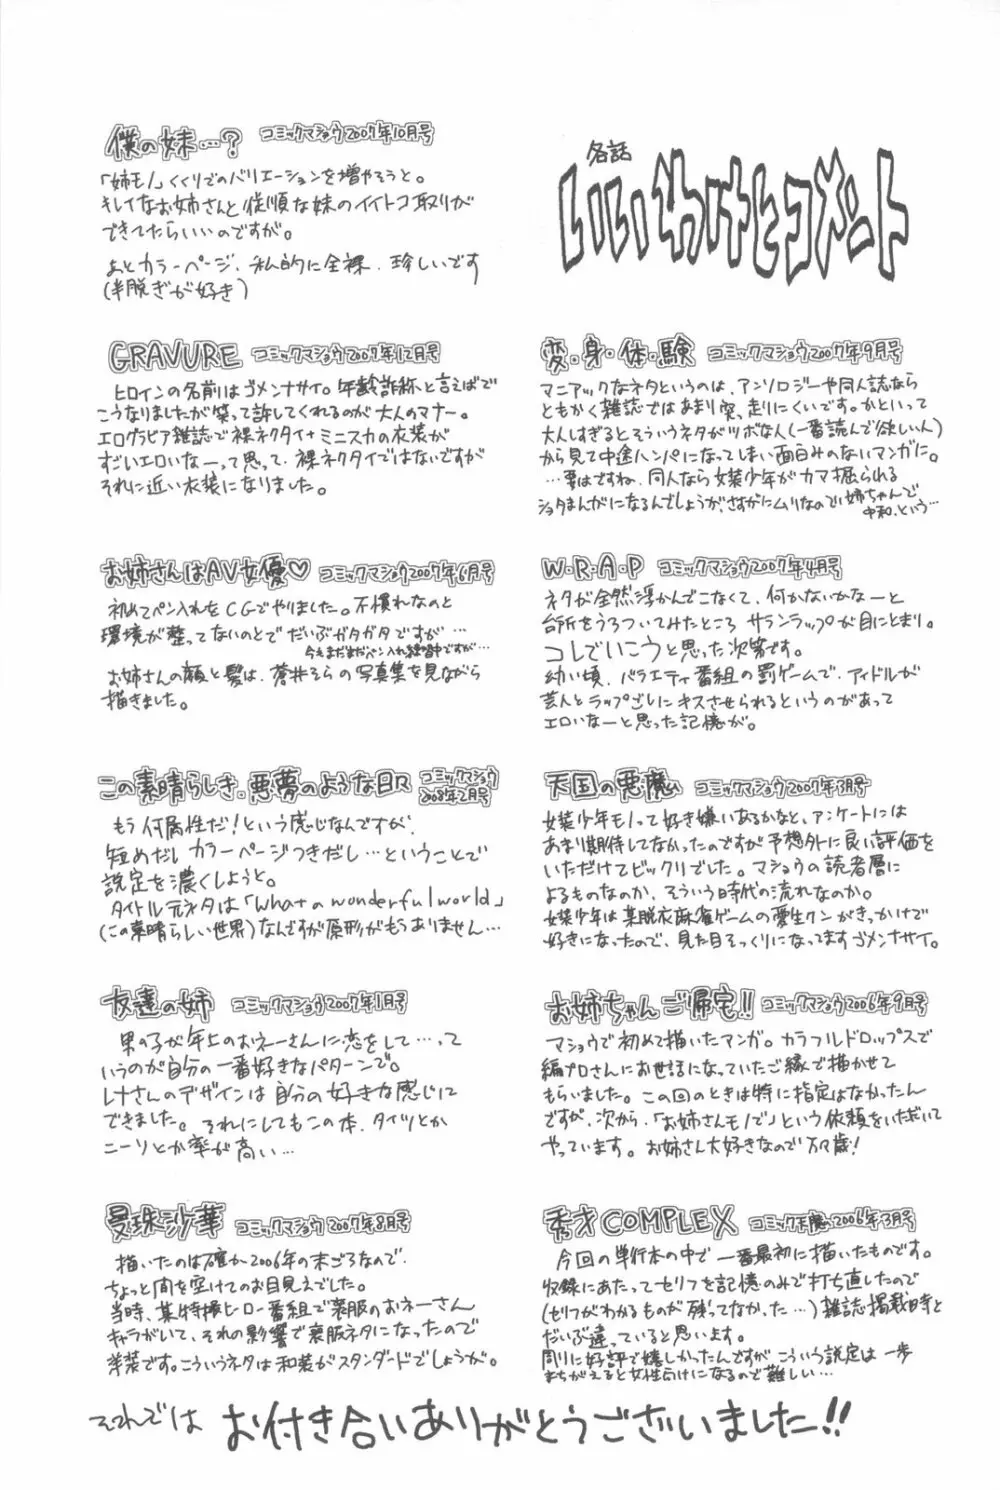 各話
いいわけとコメント
変・身・体・験 コミックマショウ2007年9月号
マニアックなネタというのは、アンソロジーや同人誌なら
ともかく雑誌ではあまり突っ走りにくいです。かといって
大人しすぎるとそういうネタがツボな人(一番読んで欲しい人)
から見て中途ハンパになってしまい面白みのないマンガに。
…要はですね、同人なら女装少年がカマ掘られる
ショタまんがになるんでしょうが、さすがにムリなので姉ちゃんで
中和、という…
W・R・A・P コミックマショウ2007年4月号
ネタが全然浮かんでこなくて、何かないかなーと
台所をうろついてみたところ サランラップが目にとまり。
コレでいこうと思った次第です。
幼い頃、バラエティ番組の罰ゲームで、アイドルが
芸人とラップごしにキスさせられるというのがあって
エロいなーと思った記憶が。
天国の悪魔 コミックマショウ2007年3月号
女装少年モノって好き嫌いあるかなと、アンケートには
あまり期待してなかったのですが予想外に良い評価を
いただけてビックリでした。マショウの読者層に
よるものなのか、そういう時代の流れなのか。
女装少年は某脱衣麻雀ゲームの愛生クンがきっかけで
好きになったので、見た目そっくりになってますゴメンナサイ。
お姉ちゃんご帰宅!! コミックマショウ2006年9月号
マショウで初めて描いたマンガ。カラフルドロップスで
編プロさんにお世話になっていたご縁で描かせて
もらいました。この回のときは特に指定はなかったん
ですが、次から、「お姉さんモノで」という依頼をいただいて
やっています。お姉さん大好きなので万歳!
秀才COMPLEX コミック正魔2006年3月号
今回の単行本の中で一番最初に描いたものです。
収録にあたってセリフを記憶のみで打ち直したので
(セリフがわかるものが残ってなかった…)雑誌掲載時と
だいぶ違っていると思います。
周りに好評で嬉しかったんですが こういう設定は一歩
まちがえると女性向けになるので難しい…
僕の妹…? コミックマショウ2007年10月号
「姉モノ」くくりでのバリエーションを増やそうと。
キレイなお姉さんと従順な妹のイイトコ取りが
できてたらいいのですが。
あとカラーページ、私的に全裸、珍しいです
(半脱ぎが好き)
GRAVURE コミックマショウ2007年12月号
ヒロインの名前はゴメンナサイ。年齢詐称と言えばで
こうなりましたが笑って許してくれるのが大人のマナー。
エログラビア雑誌で裸ネクタイ+ミニスカの衣装が
すごいエロいなーって思って、裸ネクタイではないですが
それに近い衣装になりました。
お姉さんはAV女優♡ コミックマショウ2007年6月号
初めてペン入れをCGでやりました。不慣れなのと
環境が整ってないのとでだいぶガタガタですが…
今もまだまだペン入れ練習中ですが…
お姉さんの顔と髪は、蒼井そらの写真集を見ながら
描きました。
この素晴らしき、悪夢のような日々 コミックマショウ
2008年2月号
もう何属性だ!という感じなんですが、
短めだしカラーページつきだし…ということで
設定を濃くしようと。
タイトル元ネタは「What a wonderful world」
(この素晴らしい世界)なんですが原形がもうありません…
友達の姉 コミックマショウ2007年1月号
男の子が年上のおネーさんに恋をして…って
いうのが自分の一番好きなパターンで。
レナさんのデザインは自分の好きな感じに
できました。それにしてもこの本、タイツとか
ニーソとか率が高い…
曼珠沙華 コミックマショウ2007年8月号
描いたのは確か2006年の末ごろなので、
ちょっと間を空けてのお目見えでした。
当時、某特撮ヒーロー番組で喪服のおネーさん
キャラがいて、それの影響で喪服ネタになったので
洋装です。こういうネタは和装がスタンダードでしょうが。
それでは お付き合いありがとうございました!!